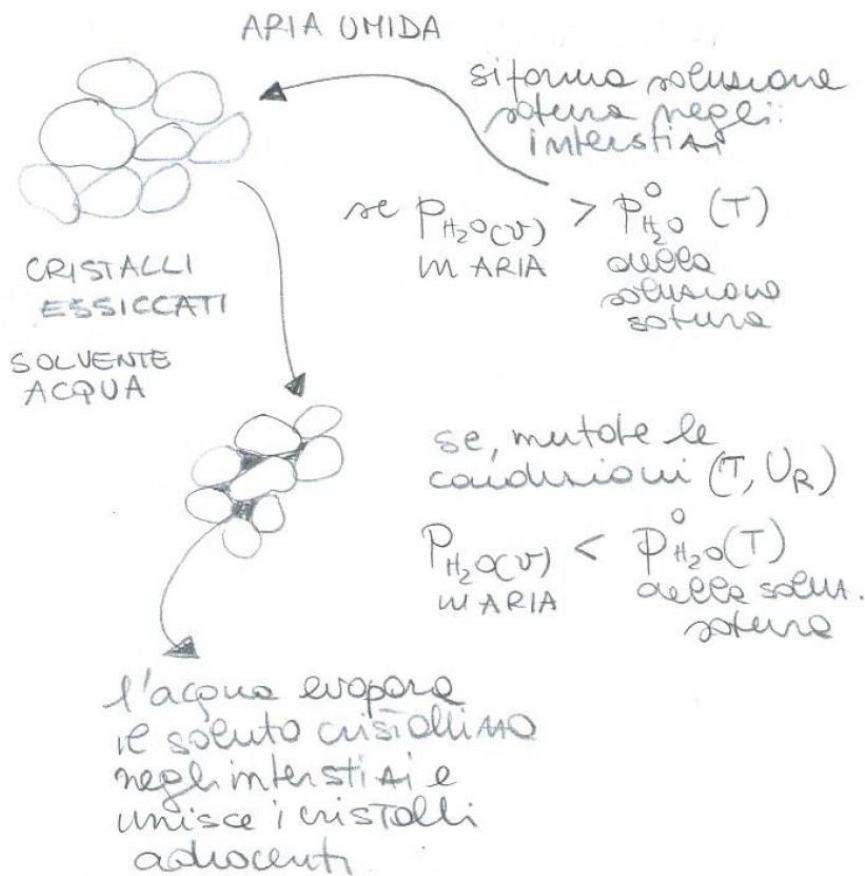 ARIA UMIDA
si forma soluzione
satura negli
interstizi
se P H₂O(v) > P° H₂O (T)
IN ARIA
della
soluzione
satura
CRISTALLI
ESSICCATI
SOLVENTE
ACQUA
se, mutate le
condizioni (T, U_R)
P H₂O(v) < P° H₂O (T)
IN ARIA
della soluz.
satura
l'acqua evapora
il soluto cristallino
negli interstizi e
unisce i cristalli
adiacenti